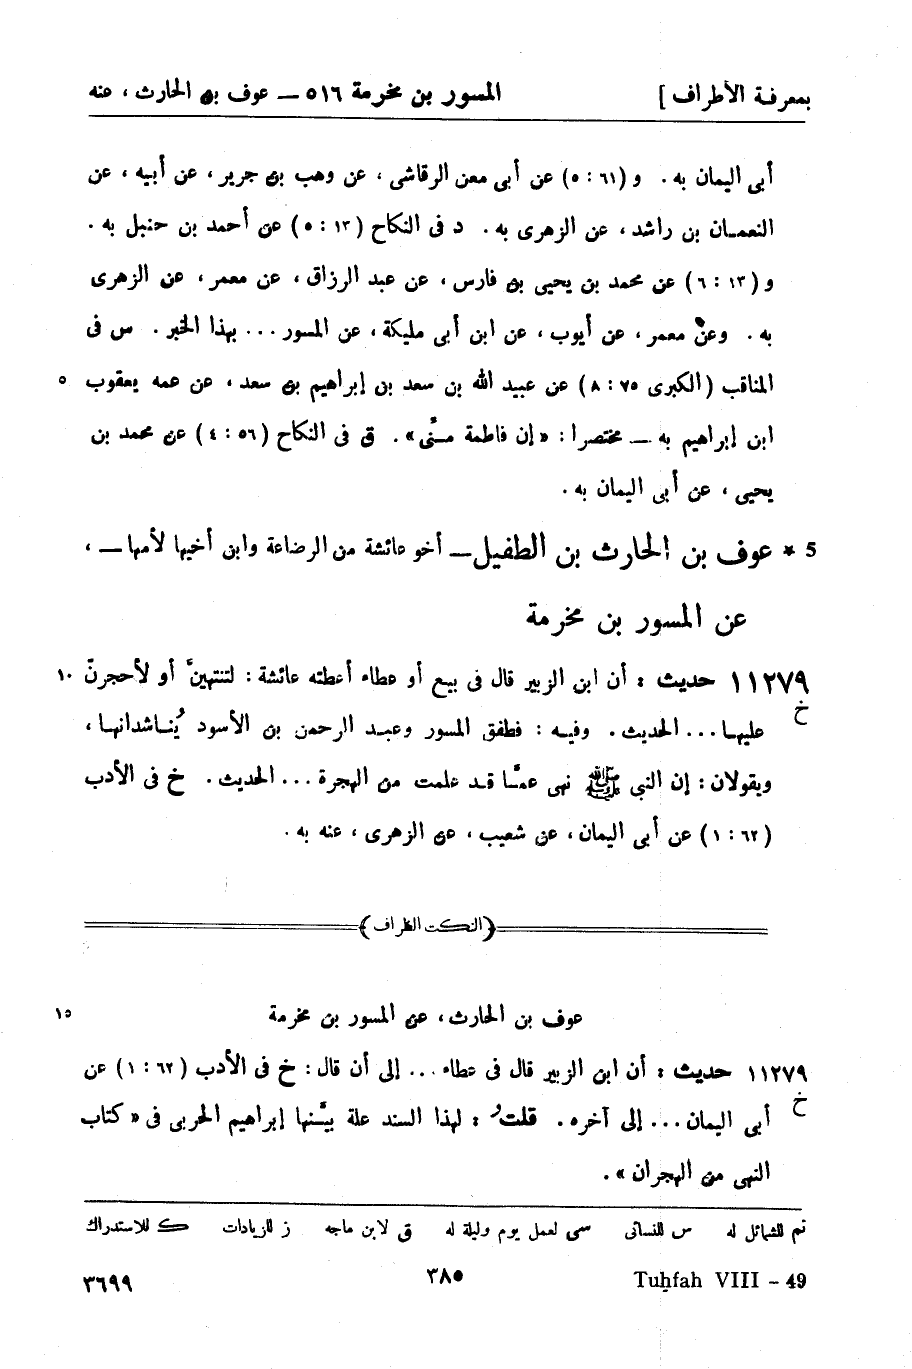 بمعرفة الأطراف ] المسور بن مخرمة ٥١٦ — عوف بن الحارث ، عنه
أبى اليمان به . و (٦١ : ٥) عن أبى معن الرقاشى ، عن وهب بن جرير ، عن أبيه ، عن
النعمان بن راشد ، عن الزهرى به . د فى النكاح (١٣ : ٥) عن أحمد بن حنبل به .
و (١٣ : ٦) عن محمد بن يحيى بن فارس ، عن عبد الرزاق ، عن معمر ، عن الزهرى
به . وعن معمر ، عن أيوب ، عن ابن أبى مليكة ، عن المسور ... بهذا الخبر . س فى
المناقب (الكبرى ٧٥ : ٨) عن عبيد الله بن سعد بن إبراهيم بن سعد ، عن عمه يعقوب ٥
ابن إبراهيم به — مختصرا : «إن فاطمة منّى» . ق فى النكاح (٥٦ : ٤) عن محمد بن
يحيى ، عن أبى اليمان به .
5 * عوف بن الحارث بن الطفيل — أخو عائشة من الرضاعة وابن أخيها لأمها — ،
عن المسور بن مخرمة
١١٢٧٩ حديث : أن ابن الزبير قال فى بيع أو عطاء أعطته عائشة : لتنتهينّ أو لأحجرنّ ١٠
خ عليها ... الحديث . وفيه : فطفق المسور وعبد الرحمن بن الأسود يُناشدانها ،
ويقولان : إن النبى ﷺ نهى عمّا قد علمت من الهجرة ... الحديث . خ فى الأدب
(٦٢ : ١) عن أبى اليمان ، عن شعيب ، عن الزهرى ، عنه به .
(النكت الظراف)
عوف بن الحارث ، عن المسور بن مخرمة ١٥
١١٢٧٩ حديث : أن ابن الزبير قال فى عطاء ... إلى أن قال : خ فى الأدب (٦٢ : ١) عن
خ أبى اليمان ... إلى آخره . قلتُ : لهذا السند علة بيّنها إبراهيم الحربى فى «كتاب
النهى من الهجران» .
تم للشمائل له س للنسائى سى لعمل يوم وليلة له ق لابن ماجه ز للزيادات ك للاستدراك
Tuḥfah VIII – 49 ٣٨٥ ٣٦٩٩